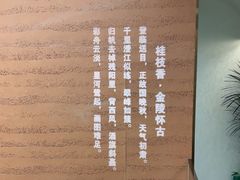 桂枝香·金陵怀古
登临送目，正故国晚秋，天气初肃。
千里澄江似练，翠峰如簇。
归帆去棹残阳里，背西风，酒旗斜矗。
彩舟云淡，星河鹭起，画图难足。